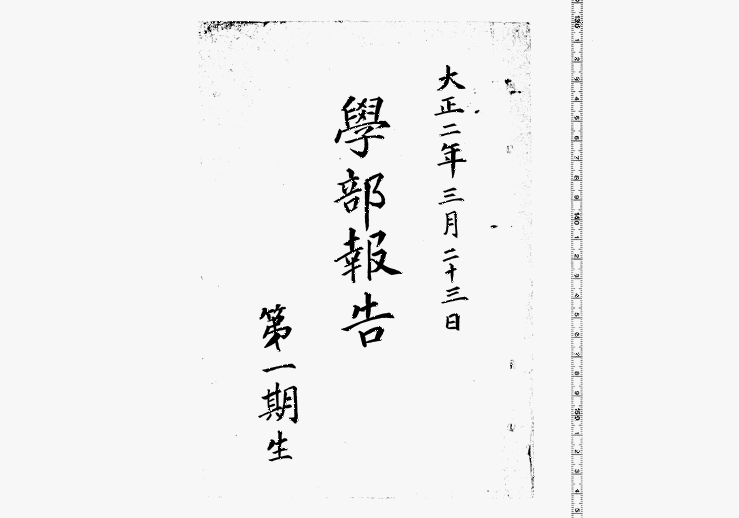 大正二年三月二十三日
學部報告
第一期生